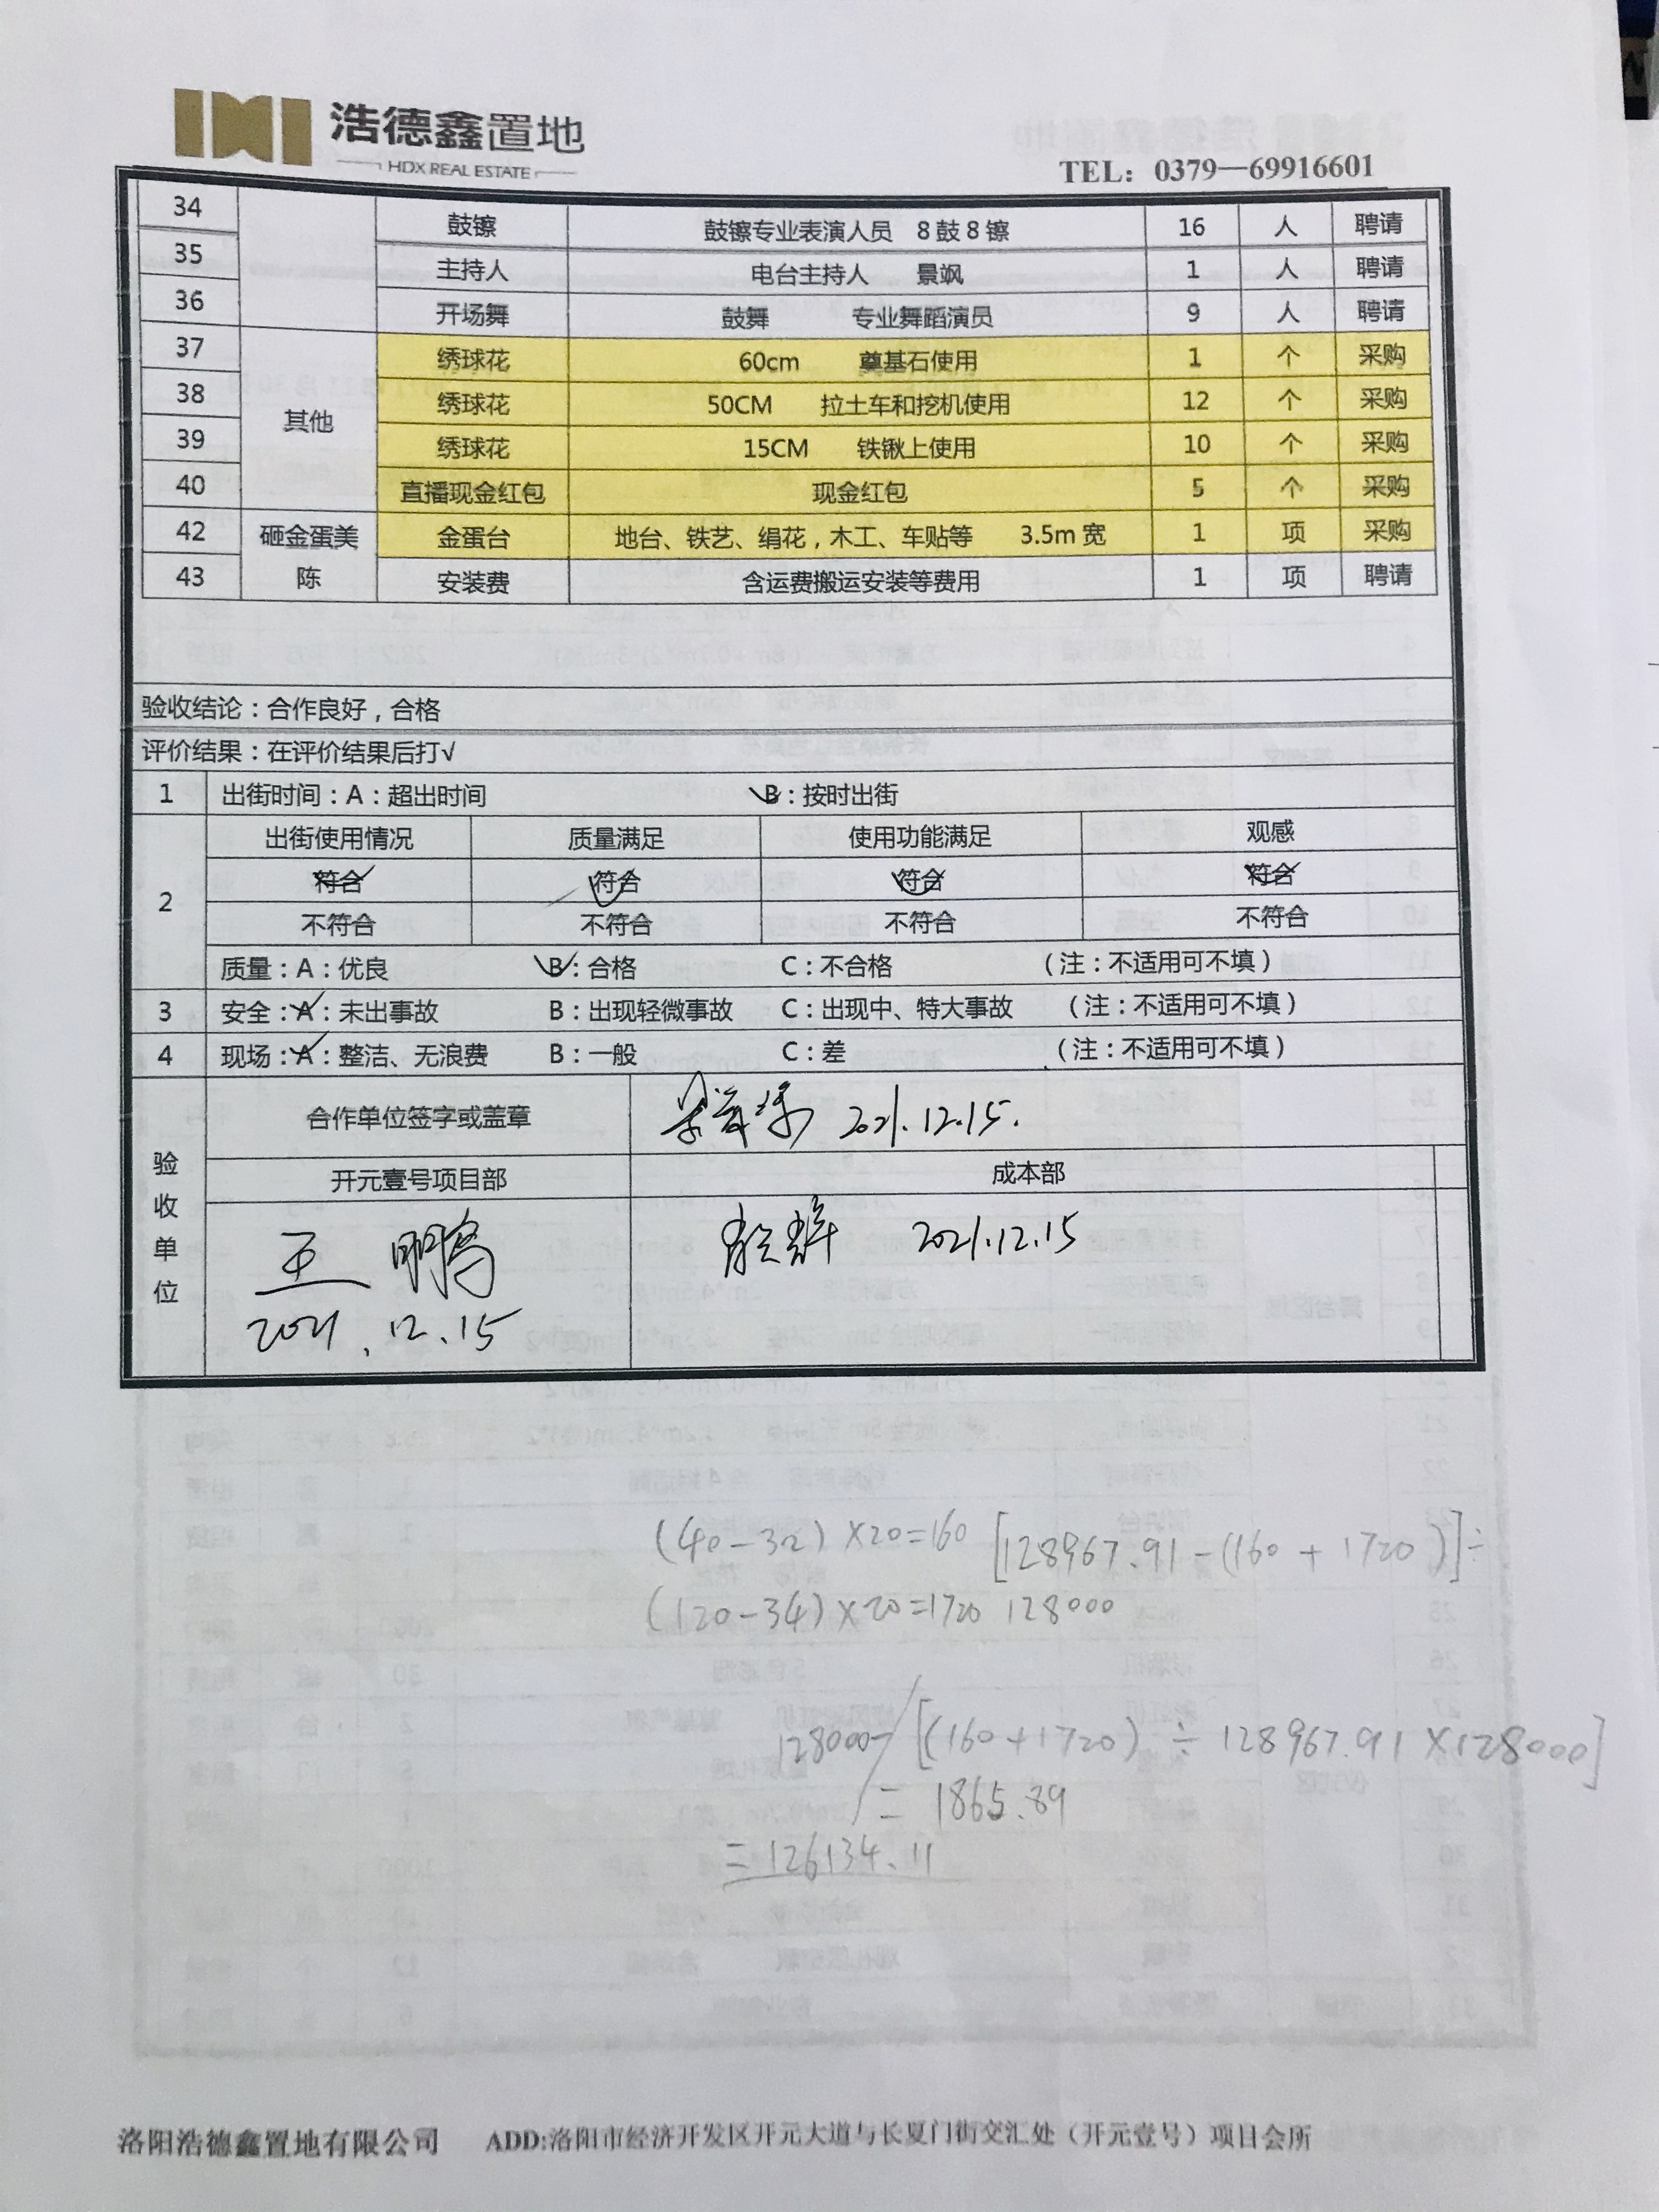 浩德鑫置地
HDX REAL ESTATE
TEL：0379—69916601
34 鼓镲 鼓镲专业表演人员 8鼓8镲 16 人 聘请
35 主持人 电台主持人 景飒 1 人 聘请
36 开场舞 鼓舞 专业舞蹈演员 9 人 聘请
37 绣球花 60cm 奠基石使用 1 个 采购
38 其他 绣球花 50CM 拉土车和挖机使用 12 个 采购
39 绣球花 15CM 铁锹上使用 10 个 采购
40 直播现金红包 现金红包 5 个 采购
42 砸金蛋美 金蛋台 地台、铁艺、绢花，木工、车贴等 3.5m宽 1 项 采购
43 陈 安装费 含运费搬运安装等费用 1 项 聘请
验收结论：合作良好，合格
评价结果：在评价结果后打√
1 出街时间：A：超出时间 B：按时出街
2 出街使用情况 质量满足 使用功能满足 观感
符合 符合 符合 符合
不符合 不符合 不符合 不符合
质量：A：优良 B：合格 C：不合格 （注：不适用可不填）
3 安全：A：未出事故 B：出现轻微事故 C：出现中、特大事故 （注：不适用可不填）
4 现场：A：整洁、无浪费 B：一般 C：差 （注：不适用可不填）
验收单位
合作单位签字或盖章 2021.12.15.
开元壹号项目部 成本部
王鹏 2021.12.15
2021.12.15
(40-32)×20=160 [128967.91-(160+1720)]÷
(120-34)×20=1720 128000
128000-[(160+1720)÷128967.91×128000]
=1865.89
=126134.11
洛阳浩德鑫置地有限公司 ADD:洛阳市经济开发区开元大道与长夏门街交汇处（开元壹号）项目会所